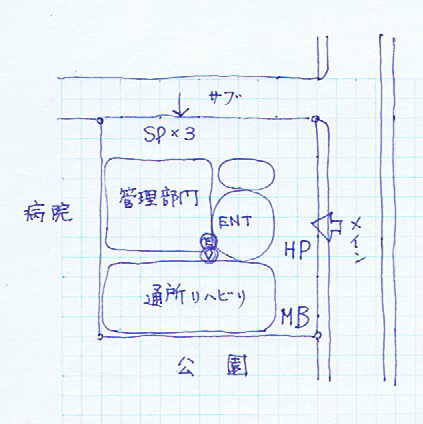 サブ
SP×3
管理部門
病院
ENT
メイン
E
V
HP
通所リハビリ
MB
公園